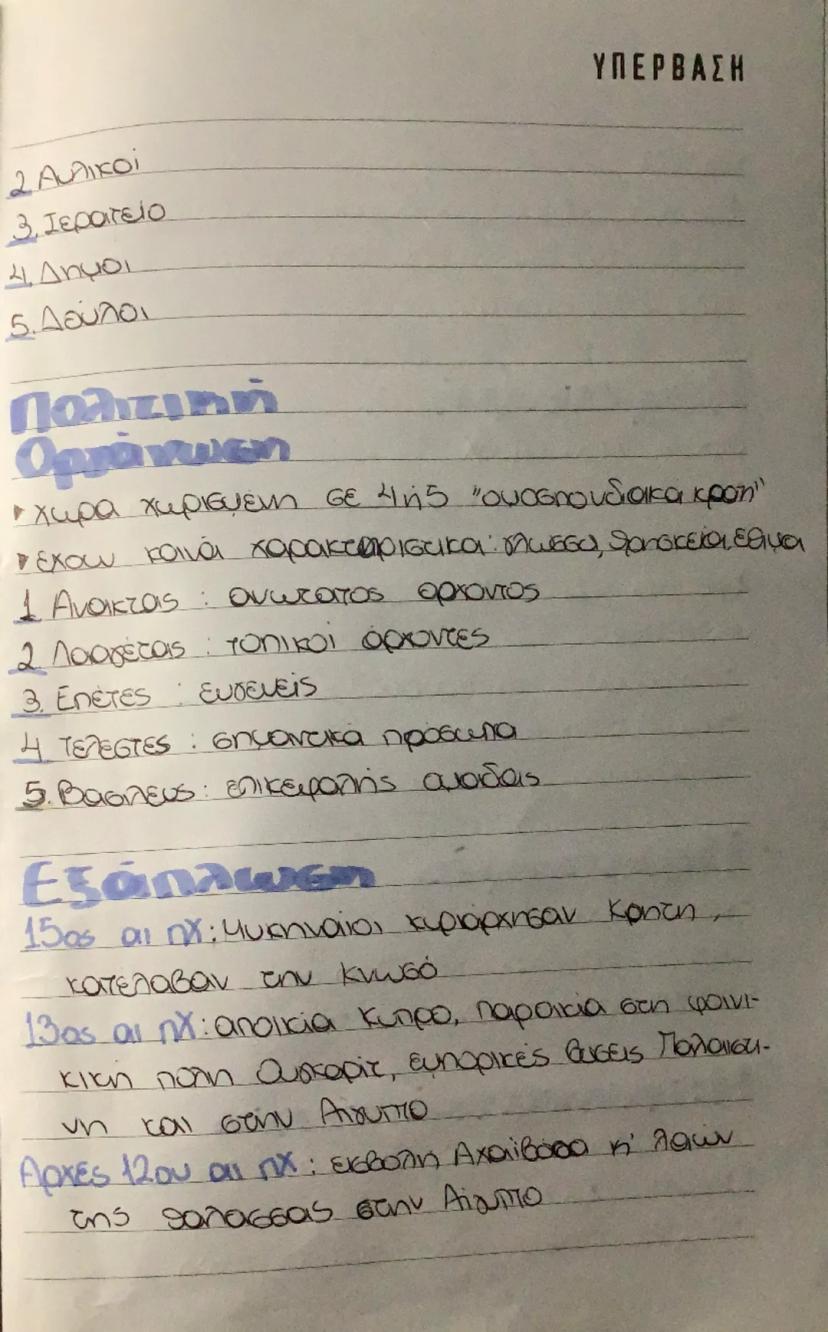 ΥΠΕΡΒΑΣΗ
2 Αυλικοί
3. Ιερατείο
4. Δήμοι
5. Δούλοι
Πολιτική
Οργάνωση
χώρα χωρισμένη σε 4 ή 5 "ομοσπονδιακα κρατη"
έχουν κοινά χαρακτηριστικά: γλώσσα, θρησκεία, έθιμα
1 Ανακτας : ανωτατος αρχοντος
2 Λααγέτας : τοπικοί άρχοντες
3. Επέτες : ευγενείς
4 τελεστες : σημαντικά πρόσωπα
5. Βασιλευς : επικεφαλής ομάδας
Εξάπλωση
15ος αι πΧ: Μυκηναίοι κυριάρχησαν Κρητη,
κατέλαβαν την Κνωσό
13ος αι πΧ: αποικία Κυπρο, παροικία στη φοινι-
κική πόλη Ουγκαρίτ, εμπορικές θέσεις Παλαιστι-
νη και στην Αιγυπτο
Αρχές 12ου αι πΧ: εισβολή Αχαϊβάσα κ' λαών
της θαλασσας στην Αίγυπτο